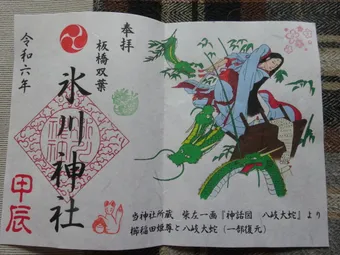 奉拝
板橋双葉
氷川神社
令和六年
甲辰
当神社所蔵 柴左一画『神話図 八岐大蛇』より
櫛稲田姫尊と八岐大蛇(一部復元)